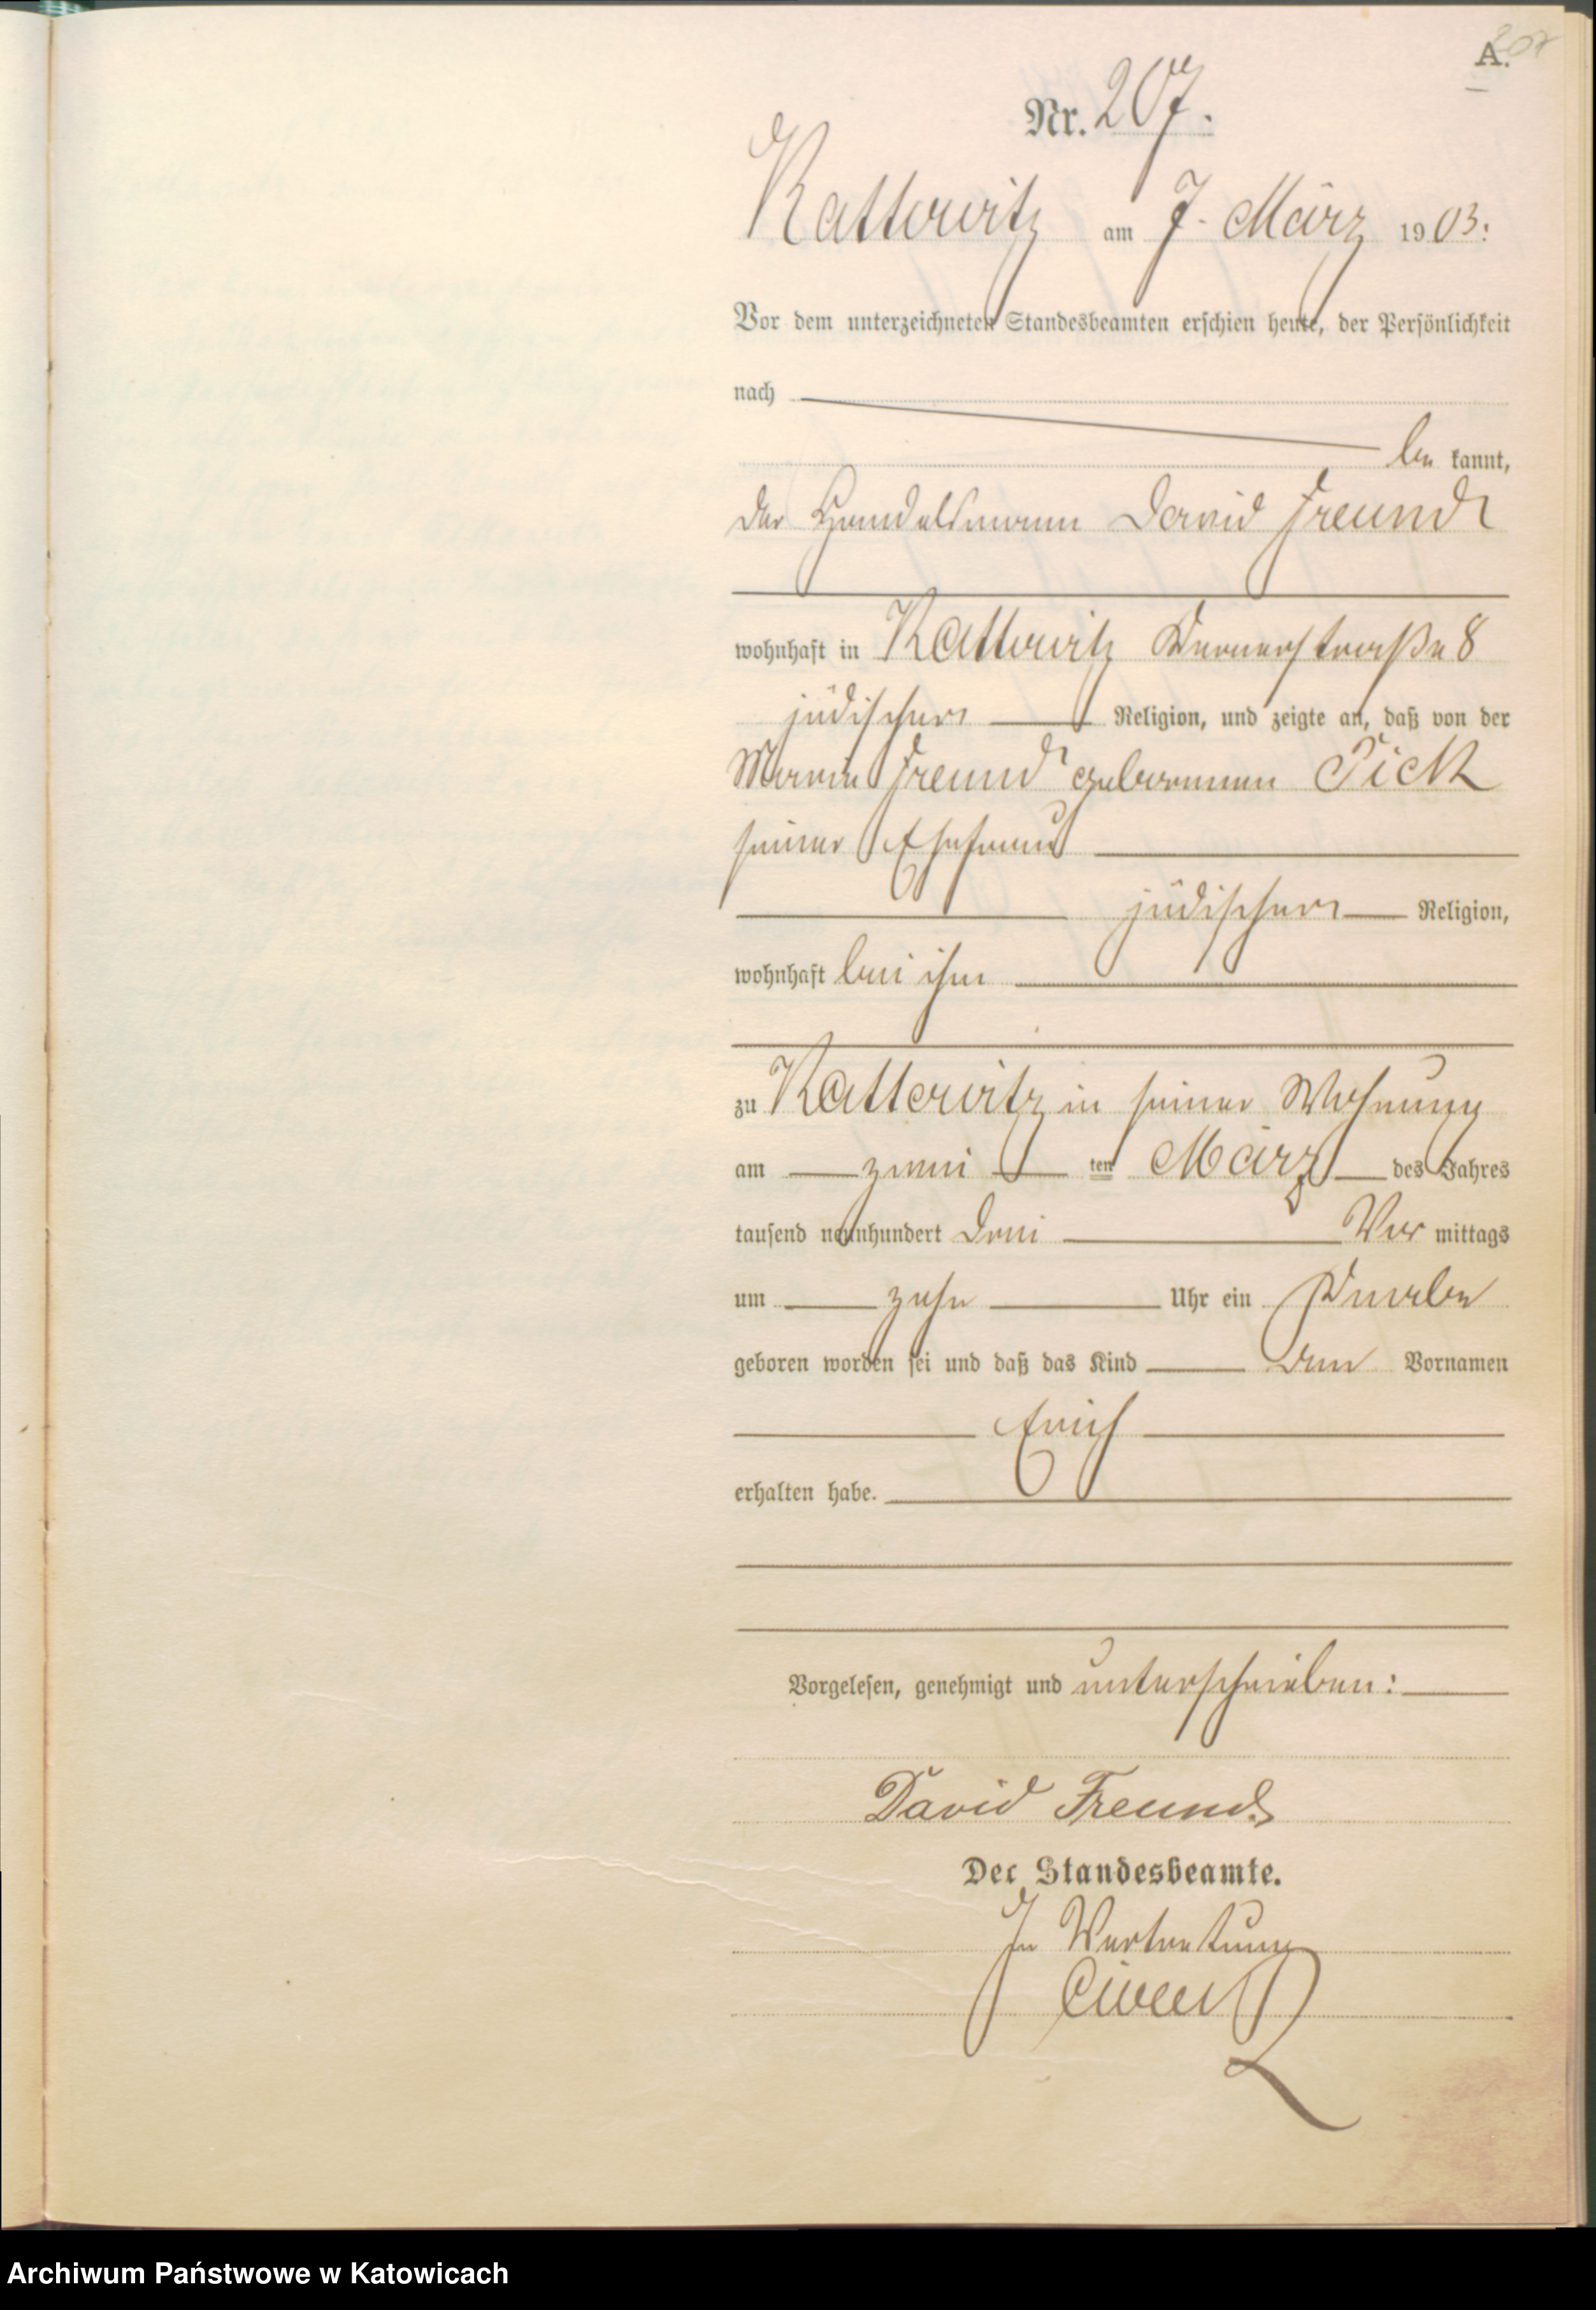 207
A.
Nr. 207.
Kattowitz am 7. März 1903.
Vor dem unterzeichneten Standesbeamten erschien heute, der Persönlichkeit
nach
be kannt,
der Handelsmann David Freund
wohnhaft in Kattowitz Wernerstraße 8
jüdischer Religion, und zeigte an, daß von der
Freund geborenen Pick
seiner Ehefrau
jüdischer Religion,
wohnhaft bei ihm
zu Kattowitz in seiner Wohnung
am zwei ten März des Jahres
tausend neunhundert drei Vor mittags
um zehn Uhr ein Knabe
geboren worden sei und daß das Kind den Vornamen
Erich
erhalten habe.
Vorgelesen, genehmigt und unterschrieben:
David Freund
Der Standesbeamte.
In Vertretung
Archiwum Państwowe w Katowicach